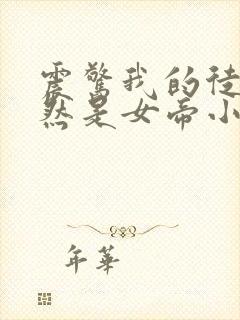 震驚我的徒
然是女帝小
年華